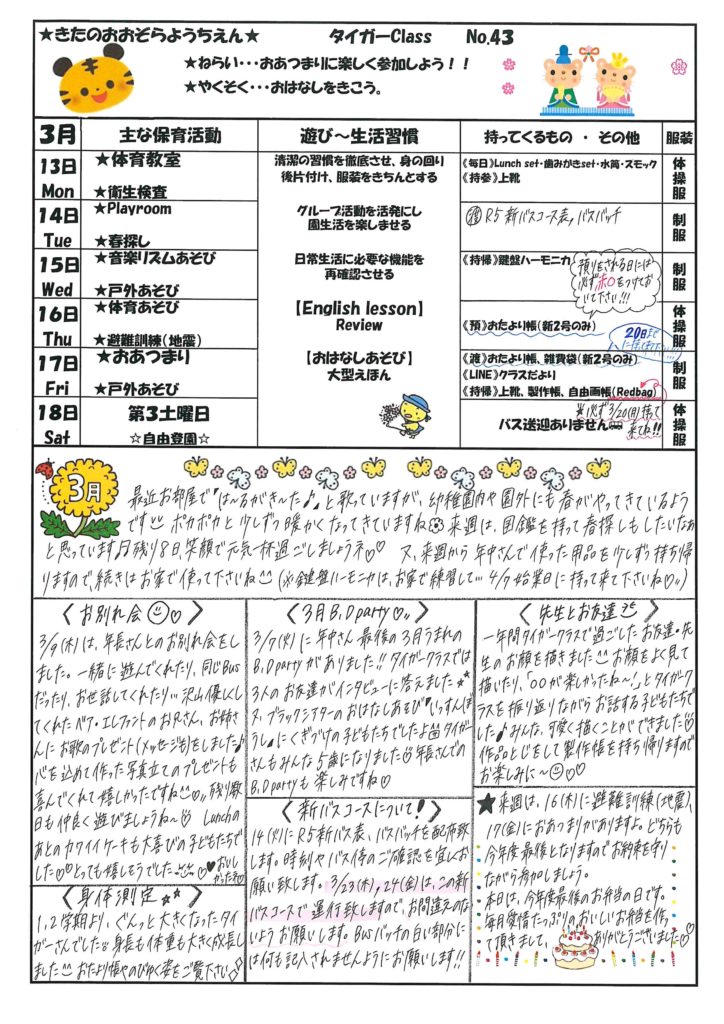 ★きたのおおぞらようちえん★ タイガーClass No.43
★ねらい・・・おあつまりに楽しく参加しよう！！
★やくそく・・・おはなしをきこう。
3月 主な保育活動 遊び～生活習慣 持ってくるもの ・ その他 服装
13日 Mon
★体育教室
★衛生検査
清潔の習慣を徹底させ、身の回り
後片付け、服装をきちんとする
《毎日》Lunch set・歯みがきset・水筒・スモック
《持参》上靴
体操服
14日 Tue
★Playroom
★春探し
グループ活動を活発にし
園生活を楽しませる
渡 R5新バスコース表，バスバッチ
制服
15日 Wed
★音楽リズムあそび
★戸外あそび
日常生活に必要な機能を
再確認させる
《持帰》鍵盤ハーモニカ
預りをされる日には
必ず赤○をつけてお
いて下さい!!!
制服
16日 Thu
★体育あそび
★避難訓練(地震)
【English lesson】
Review
《預》おたより帳(新2号のみ)
20日まで
体操服
17日 Fri
★おあつまり
★戸外あそび
【おはなしあそび】
大型えほん
《渡》おたより帳、雑費袋(新2号のみ)
《LINE》クラスだより
《持帰》上靴、製作帳、自由画帳(Redbag)
制服
18日 Sat
第3土曜日
☆自由登園☆
※必ず3/20(月)持って
来てね!!
バス送迎ありません
体操服
3月
最近お部屋で「は〜るがき〜た♪」と歌っていますが、幼稚園内や園外にも春がやってきているよう
です ポカポカと少しずつ暖かくなってきていますね 来週は、図鑑を持って春探しもしたいなぁ
と思っています♫残り8日、笑顔で元気一杯過ごしましょうネ♡♡ 又、来週から年中さんで使った用品を少しずつ持ち帰
りますので、続きはお家で使って下さいね (※鍵盤ハーモニカは、お家で練習して… 4/7始業日に持って来て下さいね♡〃)
〈お別れ会♡〉
3/9(木)は、年長さんとのお別れ会をし
ました。一緒に遊んでくれたり、同じBus
だったり、お世話してくれたり… 沢山優しくし
てくれたベア・エレファントのお兄さん、お姉さ
んにお歌のプレゼント(メッセージも)をしました♪
心を込めて作った写真立てのプレゼントも
喜んでくれて嬉しかったですね♡〃残り数
日も仲良く遊びましょうね〜 Lunchの
あとのカワイイケーキも大喜びの子どもたちで
した♡とっても嬉しそうでした
おいしかったネ
〈身体測定〉
1,2学期より、ぐんっと大きくなったタイ
ガーさんでした 身長も体重も大きく成長し
ました おたより帳やのびゆく姿をご覧下さい
〈3月B,Dparty♡〃〉
3/7(火)に年中さん最後の3月うまれの
B,Dpartyがありました!! タイガークラスでは
3人のお友達がインタビューに答えました
又、ブラックシアターのおはなしあそび「いっすんぼ
うし」にくぎづけの子どもたちでしたよ タイガー
さんもみんな5歳になりました 年長さんでの
B,Dpartyも楽しみですね♡
〈新バスコースについて!〉
14(火)にR5新バス表、バスバッチを配布致
します。時刻やバス停のご確認を宜しくお
願い致します。3/23(木),24(金)は、この新
バスコースで運行致しますので、お間違えのな
いようお願いします。Busバッチの白い部分に
は何も記入されませんようにお願いします!!
〈先生とお友達〉
一年間タイガークラスで過ごしたお友達・先
生のお顔を描きました お顔をよく見て
描いたり、「○○が楽しかったね〜!」とタイガーク
ラスを振り返りながらお話する子どもたちで
した♪みんな、可愛く描くことができました
作品とじをして製作帳を持ち帰りますので
お楽しみに〜♡♡
★来週は、16(木)に避難訓練(地震)、
17(金)におあつまりがありますよ。どちらも
今年度最後となりますのでお約束を守り
ながら参加しましょう。
本日は、今年度最後のお弁当の日です。
毎日愛情たっぷりのおいしいお弁当を作っ
て頂きまして、ありがとうございました♡